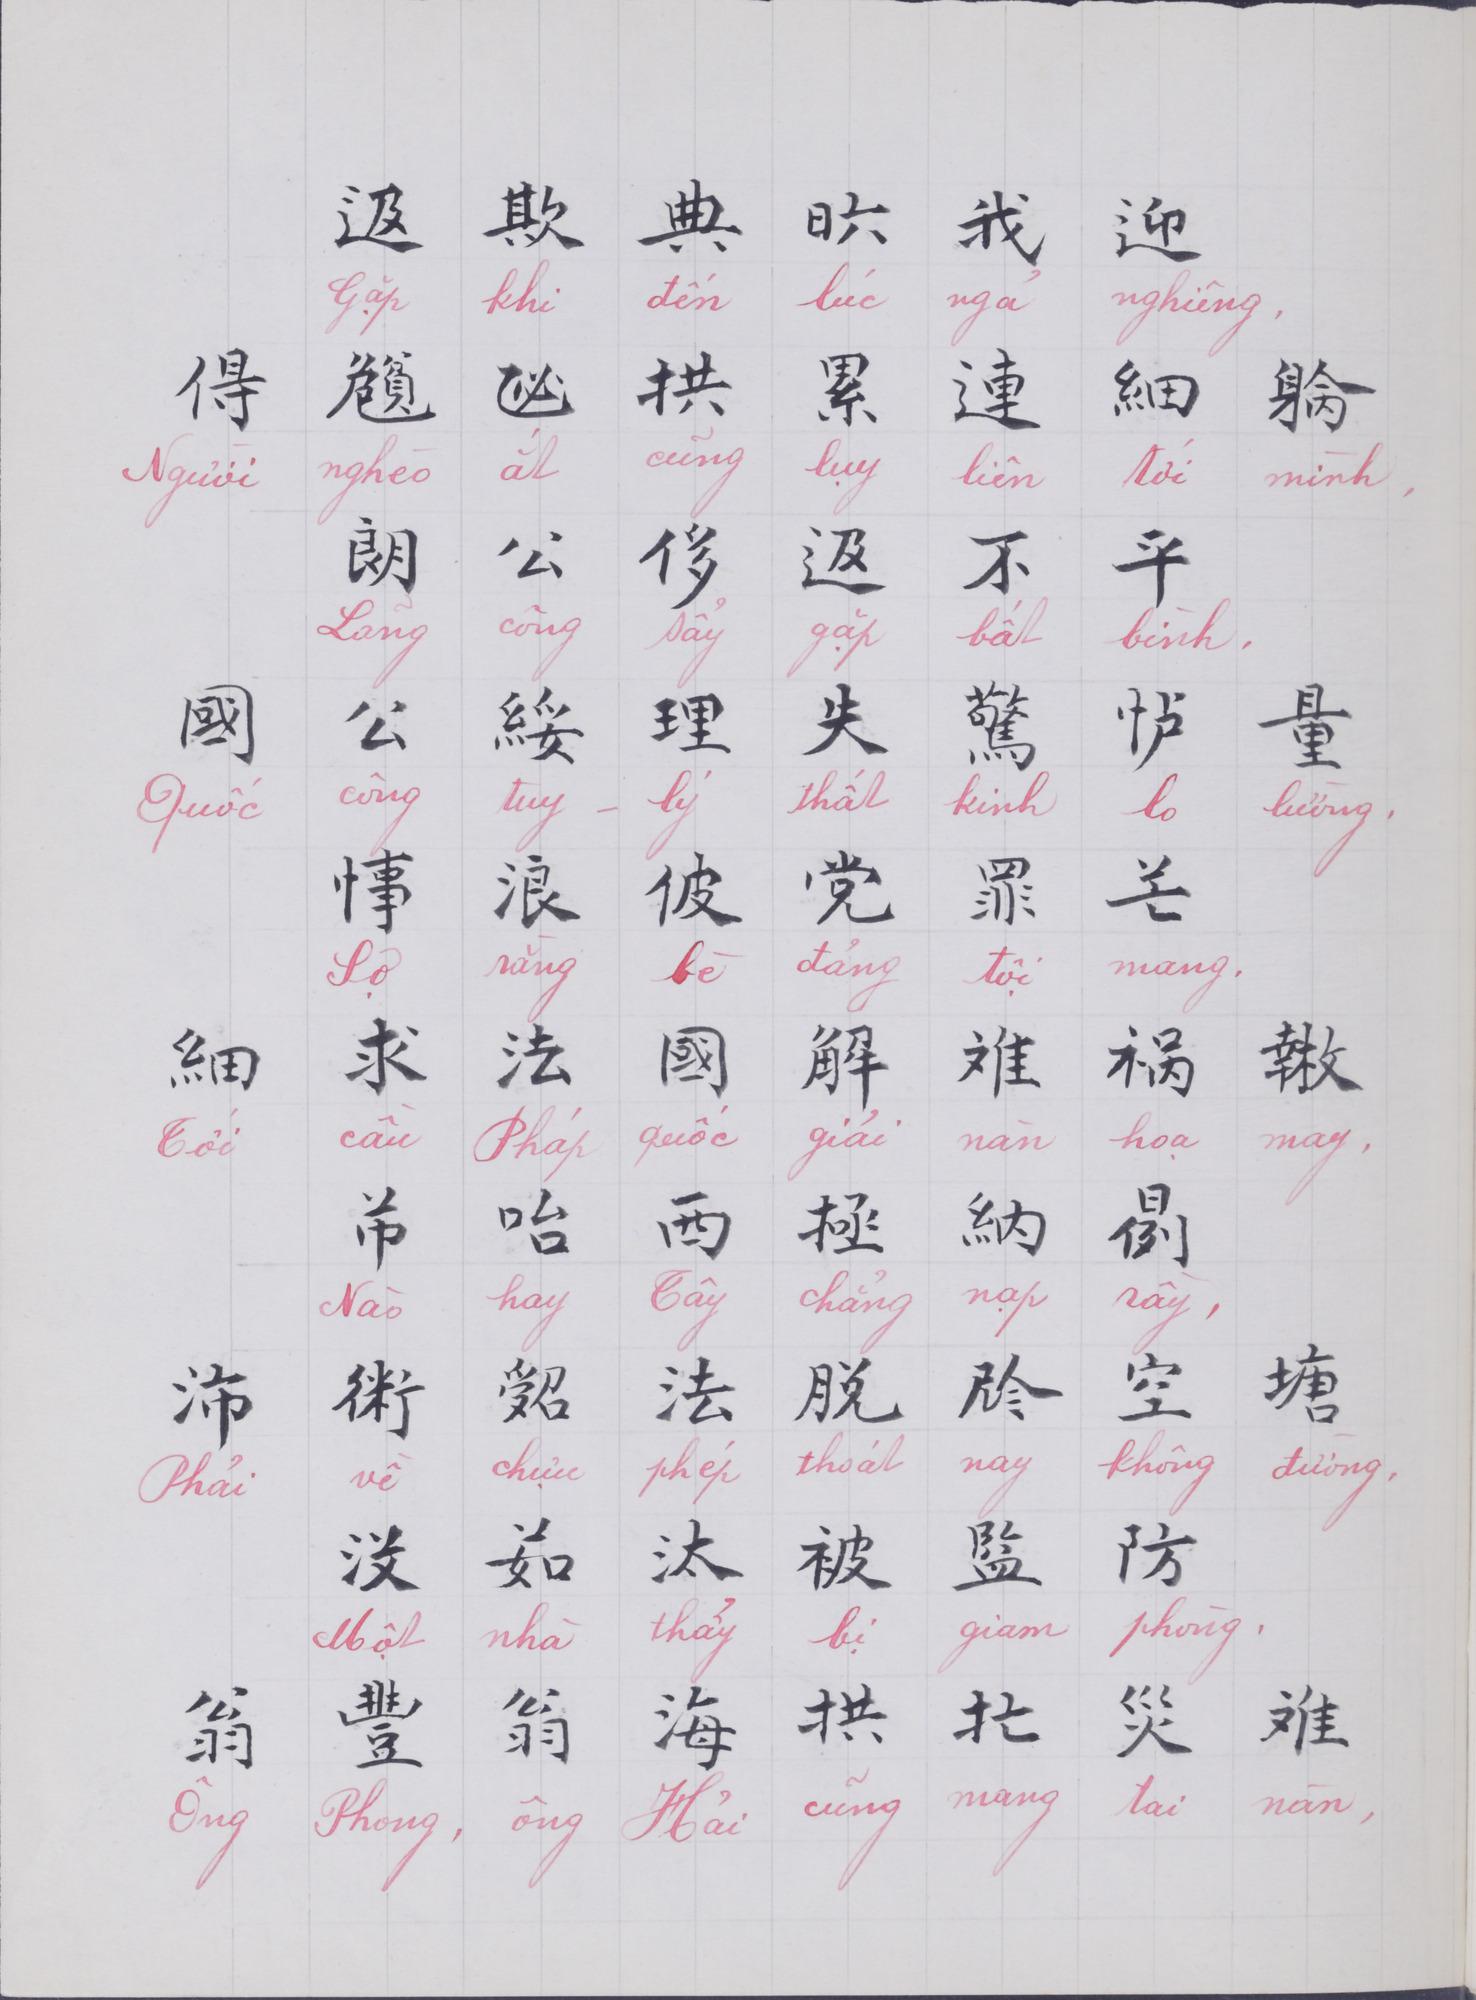 󰝡欺典𣅶我迎
Gặp khi đến lúc ngả nghiêng,
得拱累連細
Người nghèo ắt cũng luỵ liên tới mình,
朗公侈不平
Lãng công sẩy gặp bất bình.
國公綏理失驚量
Quốc công tuy - lý thất kinh lo lường.
浪彼党罪芒
Sợ rằng bè đảng tội mang.
細求法國解难祸
Tới cầu Pháp quốc giải nàn hoạ may,
咍西極納
Nào hay Tây chẳng nạp rày,
沛術法脱空塘
Phải về chực phép thoát nay không đường,
茹汰被監防
Một nhà thảy bị giam phòng.
翁豐翁海拱災难
Ông Phong, ông Hải cũng mang tai nàn,